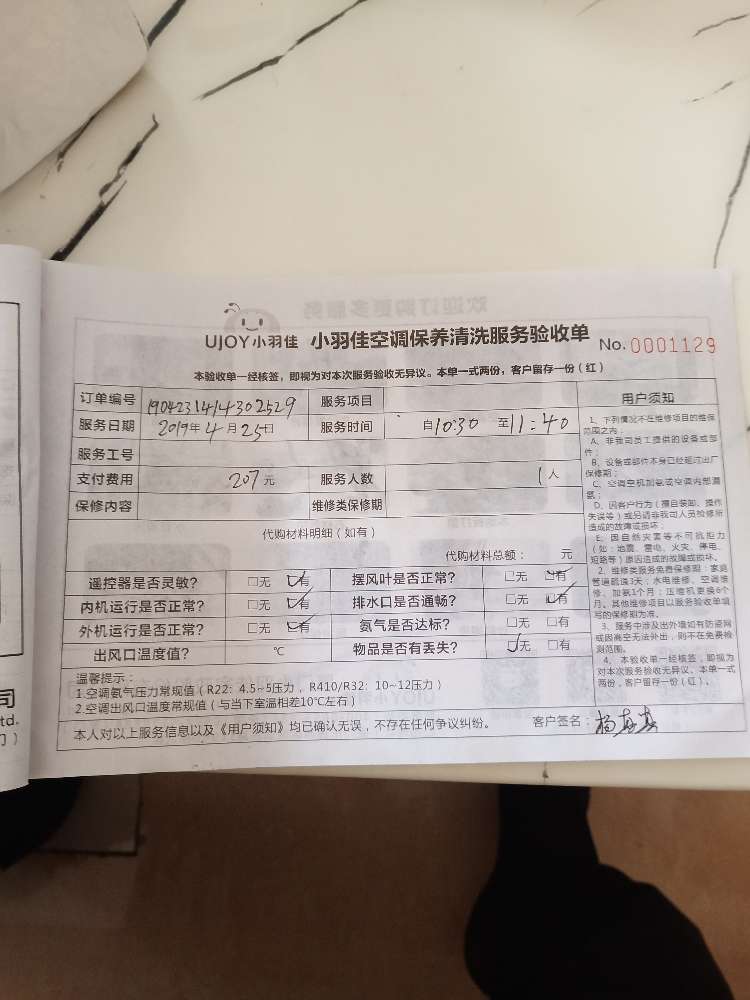 UJOY小羽佳 小羽佳空调保养清洗服务验收单 No. 0001129
本验收单一经核签，即视为对本次服务验收无异议。本单一式两份，客户留存一份（红）
订单编号 1904231414302529 服务项目
服务日期 2019年4月25日 服务时间 自10:30 至11:40
服务工号
支付费用 207元 服务人数 1人
保修内容 维修类保修期
代购材料明细（如有）
代购材料总额： 元
遥控器是否灵敏？ □无 ☑有 摆风叶是否正常？ □无 ☑有
内机运行是否正常？ □无 ☑有 排水口是否通畅？ □无 ☑有
外机运行是否正常？ □无 ☑有 氨气是否达标？ □无 □有
出风口温度值？ ℃ 物品是否有丢失？ ☑无 □有
温馨提示：
1.空调氨气压力常规值（R22：4.5~5压力，R410/R32：10~12压力）
2.空调出风口温度常规值（与当下室温相差10℃左右）
本人对以上服务信息以及《用户须知》均已确认无误，不存在任何争议纠纷。 客户签名：杨
用户须知
1、下列情况不在维修项目的维保
范围之内：
A、非我司员工提供的设备或部
件；
B、设备或部件本身已经超过出厂
保修期；
C、空调空机加氨或空调内部漏
氨；
D、因客户行为（擅自装卸、操作
失误等）或另请非我司人员检修所
造成的故障或损坏；
E、因自然灾害等不可抗拒力
（如：地震、雷电、火灾、停电、
短路等）原因造成的故障或损坏。
2、维修类服务免费保修期：家庭
管道疏通3天；水电维修、空调维
修、加氨1个月；压缩机更换6个
月。其他维修项目以服务验收单填
写的保修期为准。
3、服务中涉及出外墙如有防盗网
或因高空无法外出，则不在免费检
测范围。
4、本验收单一经核签，即视为
对本次服务验收无异议。本单一式
两份，客户留存一份（红）。
司
td.
门）